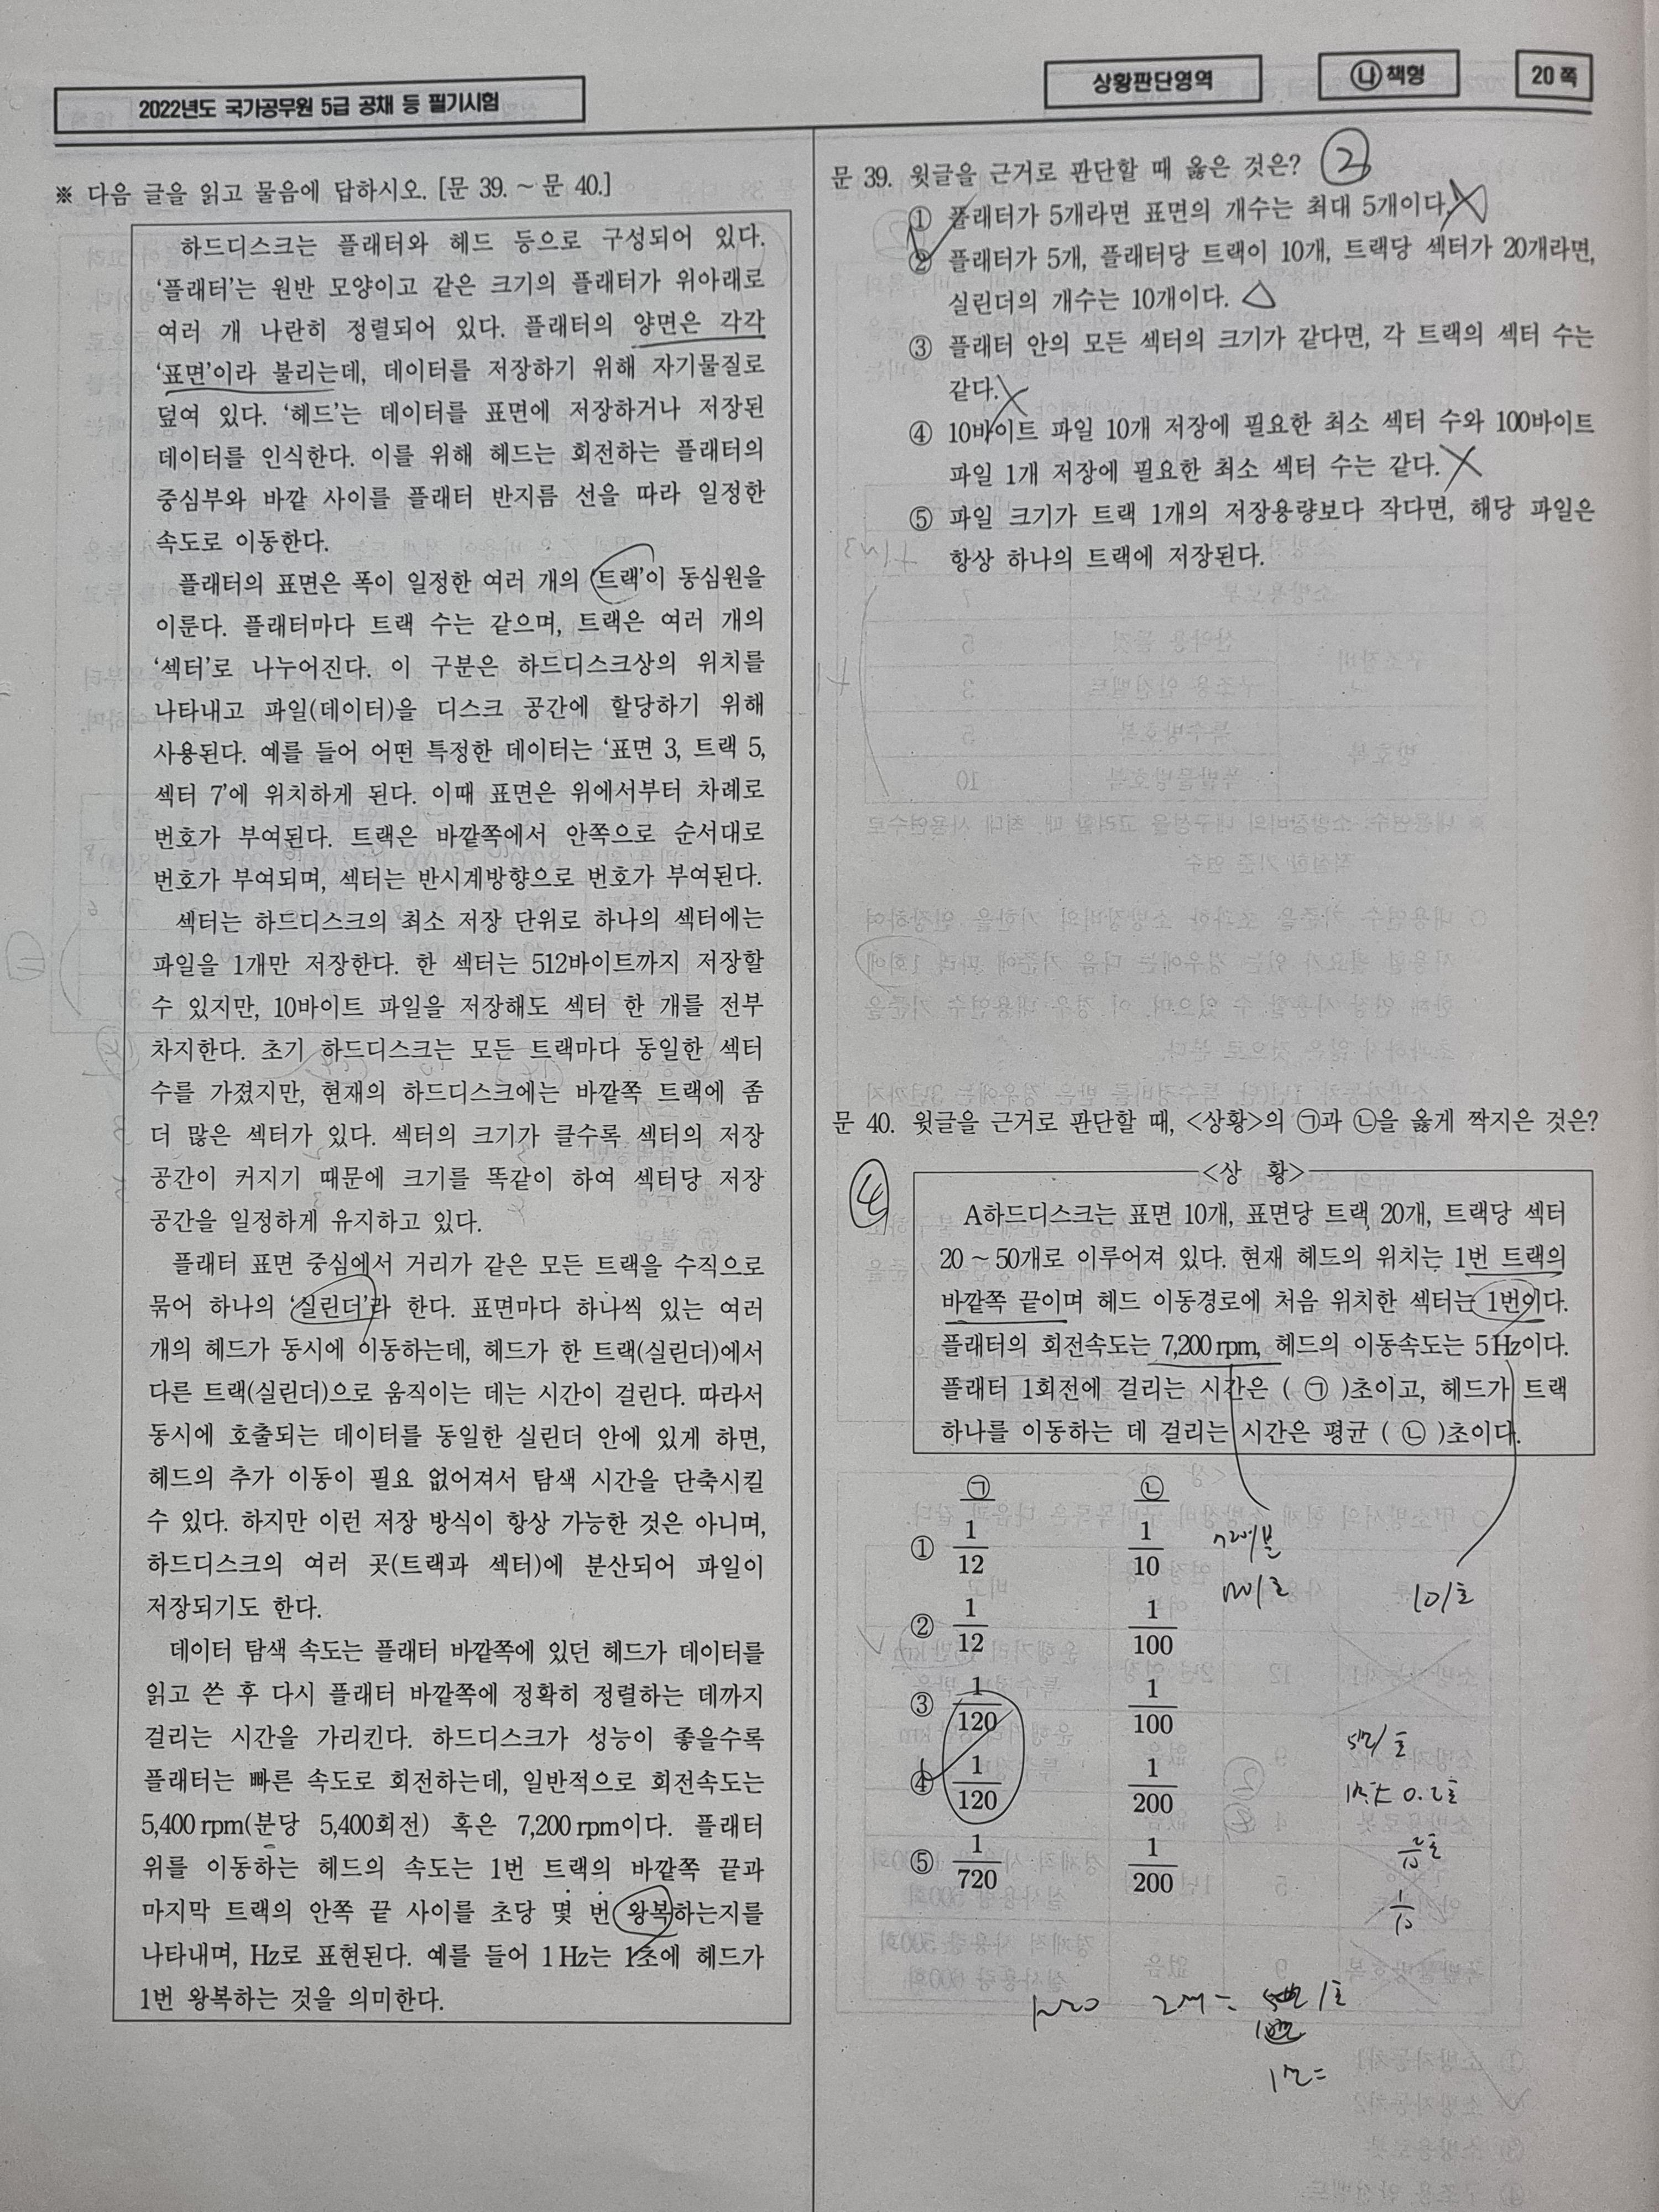 2022년도 국가공무원 5급 공채 등 필기시험
상황판단영역
㉯책형
20 쪽
※ 다음 글을 읽고 물음에 답하시오. [문 39. ~ 문 40.]
하드디스크는 플래터와 헤드 등으로 구성되어 있다.
‘플래터’는 원반 모양이고 같은 크기의 플래터가 위아래로
여러 개 나란히 정렬되어 있다. 플래터의 양면은 각각
‘표면’이라 불리는데, 데이터를 저장하기 위해 자기물질로
덮여 있다. ‘헤드’는 데이터를 표면에 저장하거나 저장된
데이터를 인식한다. 이를 위해 헤드는 회전하는 플래터의
중심부와 바깥 사이를 플래터 반지름 선을 따라 일정한
속도로 이동한다.
플래터의 표면은 폭이 일정한 여러 개의 ‘트랙’이 동심원을
이룬다. 플래터마다 트랙 수는 같으며, 트랙은 여러 개의
‘섹터’로 나누어진다. 이 구분은 하드디스크상의 위치를
나타내고 파일(데이터)을 디스크 공간에 할당하기 위해
사용된다. 예를 들어 어떤 특정한 데이터는 ‘표면 3, 트랙 5,
섹터 7’에 위치하게 된다. 이때 표면은 위에서부터 차례로
번호가 부여된다. 트랙은 바깥쪽에서 안쪽으로 순서대로
번호가 부여되며, 섹터는 반시계방향으로 번호가 부여된다.
섹터는 하드디스크의 최소 저장 단위로 하나의 섹터에는
파일을 1개만 저장한다. 한 섹터는 512바이트까지 저장할
수 있지만, 10바이트 파일을 저장해도 섹터 한 개를 전부
차지한다. 초기 하드디스크는 모든 트랙마다 동일한 섹터
수를 가졌지만, 현재의 하드디스크에는 바깥쪽 트랙에 좀
더 많은 섹터가 있다. 섹터의 크기가 클수록 섹터의 저장
공간이 커지기 때문에 크기를 똑같이 하여 섹터당 저장
공간을 일정하게 유지하고 있다.
플래터 표면 중심에서 거리가 같은 모든 트랙을 수직으로
묶어 하나의 ‘실린더’라 한다. 표면마다 하나씩 있는 여러
개의 헤드가 동시에 이동하는데, 헤드가 한 트랙(실린더)에서
다른 트랙(실린더)으로 움직이는 데는 시간이 걸린다. 따라서
동시에 호출되는 데이터를 동일한 실린더 안에 있게 하면,
헤드의 추가 이동이 필요 없어져서 탐색 시간을 단축시킬
수 있다. 하지만 이런 저장 방식이 항상 가능한 것은 아니며,
하드디스크의 여러 곳(트랙과 섹터)에 분산되어 파일이
저장되기도 한다.
데이터 탐색 속도는 플래터 바깥쪽에 있던 헤드가 데이터를
읽고 쓴 후 다시 플래터 바깥쪽에 정확히 정렬하는 데까지
걸리는 시간을 가리킨다. 하드디스크가 성능이 좋을수록
플래터는 빠른 속도로 회전하는데, 일반적으로 회전속도는
5,400 rpm(분당 5,400회전) 혹은 7,200 rpm이다. 플래터
위를 이동하는 헤드의 속도는 1번 트랙의 바깥쪽 끝과
마지막 트랙의 안쪽 끝 사이를 초당 몇 번 왕복하는지를
나타내며, Hz로 표현된다. 예를 들어 1 Hz는 1초에 헤드가
1번 왕복하는 것을 의미한다.
문 39. 윗글을 근거로 판단할 때 옳은 것은? ②
① 플래터가 5개라면 표면의 개수는 최대 5개이다.
② 플래터가 5개, 플래터당 트랙이 10개, 트랙당 섹터가 20개라면,
실린더의 개수는 10개이다.
③ 플래터 안의 모든 섹터의 크기가 같다면, 각 트랙의 섹터 수는
같다.
④ 10바이트 파일 10개 저장에 필요한 최소 섹터 수와 100바이트
파일 1개 저장에 필요한 최소 섹터 수는 같다.
⑤ 파일 크기가 트랙 1개의 저장용량보다 작다면, 해당 파일은
항상 하나의 트랙에 저장된다.
문 40. 윗글을 근거로 판단할 때, <상황>의 ㉠과 ㉡을 옳게 짝지은 것은?
④
<상 황>
A하드디스크는 표면 10개, 표면당 트랙 20개, 트랙당 섹터
20 ~ 50개로 이루어져 있다. 현재 헤드의 위치는 1번 트랙의
바깥쪽 끝이며 헤드 이동경로에 처음 위치한 섹터는 1번이다.
플래터의 회전속도는 7,200 rpm, 헤드의 이동속도는 5 Hz이다.
플래터 1회전에 걸리는 시간은 ( ㉠ )초이고, 헤드가 트랙
하나를 이동하는 데 걸리는 시간은 평균 ( ㉡ )초이다.
㉠ ㉡
① 1/12 1/10
② 1/12 1/100
③ 1/120 1/100
④ 1/120 1/200
⑤ 1/720 1/200
10/초
0.2초